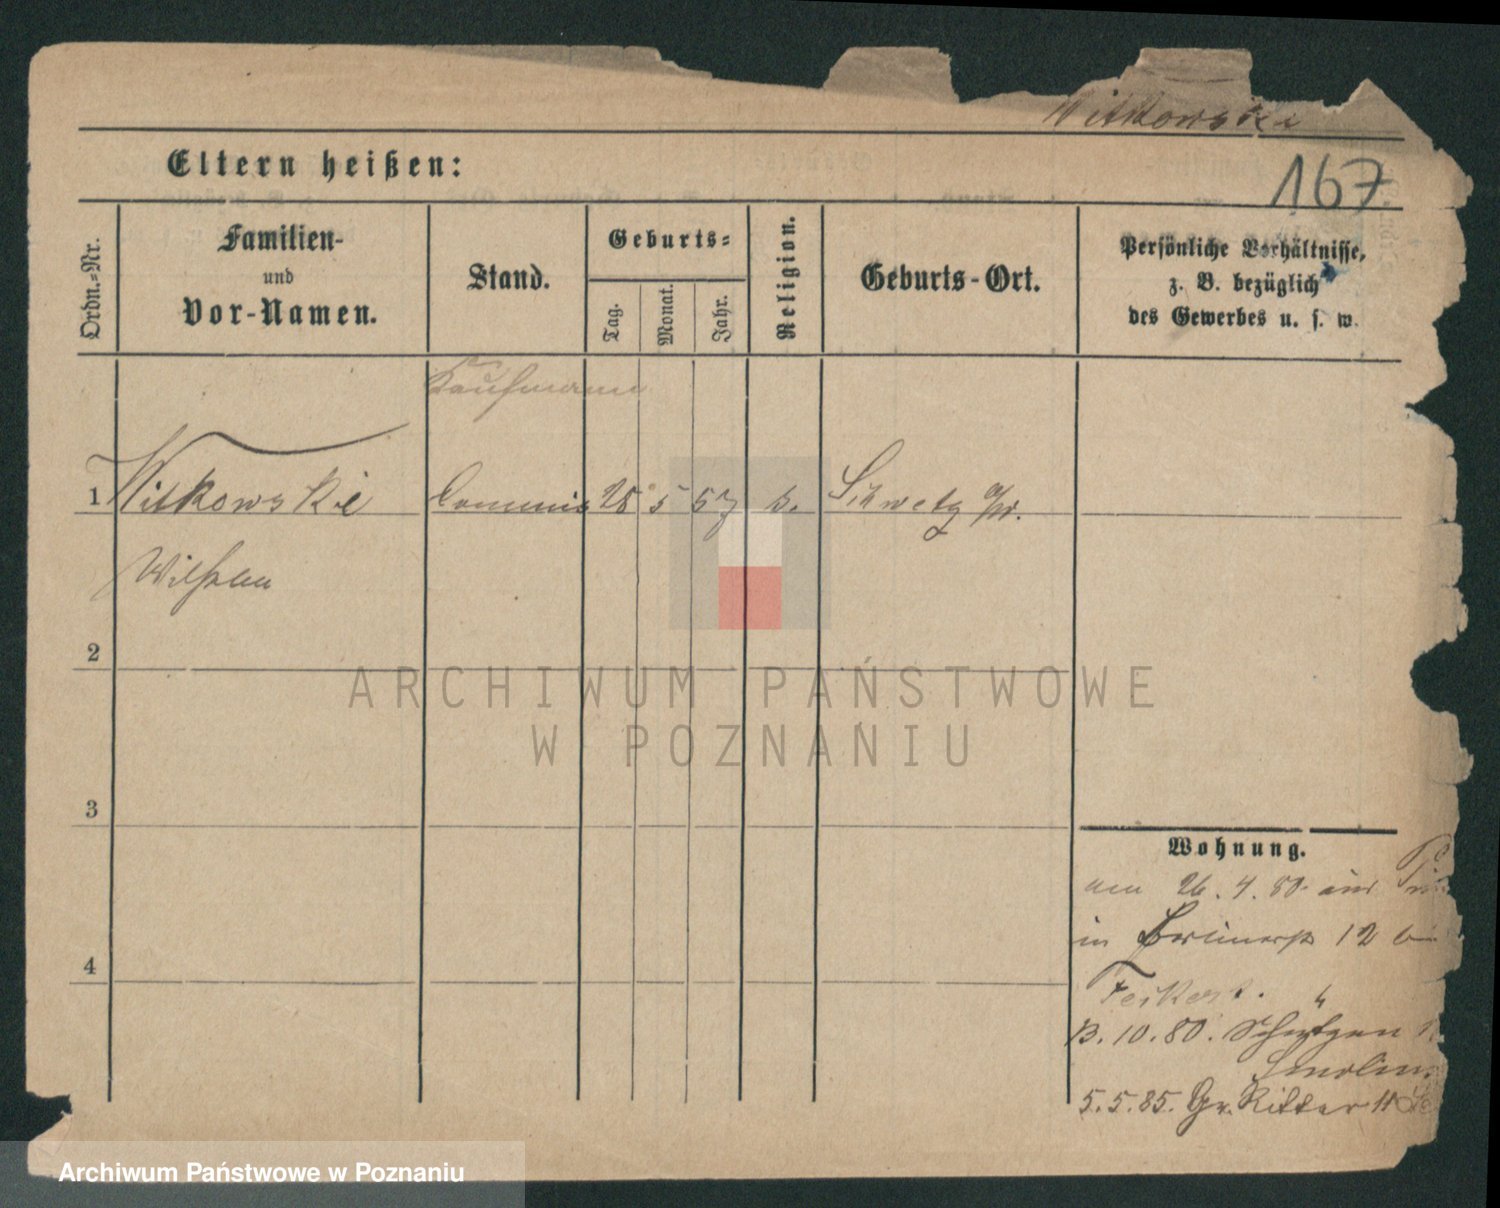 Witkowski
167
Eltern heißen:
Ordn.-Nr.
Familien-
und
Vor-Namen.
Stand.
Geburts-
Tag.
Monat.
Jahr.
Religion.
Geburts-Ort.
Persönliche Verhältnisse,
z. B. bezüglich
des Gewerbes u. s. w.
Kaufmann
1 Witkowski Commis 28 5 57 Schwetz a/W.
Wilhelm
2
3
4
Wohnung.
am 26. 4. 80. aus
in 12
Feikert.
3. 10. 80. Schützen
5. 5. 85. Gr. Ritter 11
ARCHIWUM PAŃSTWOWE
W POZNANIU
Archiwum Państwowe w Poznaniu